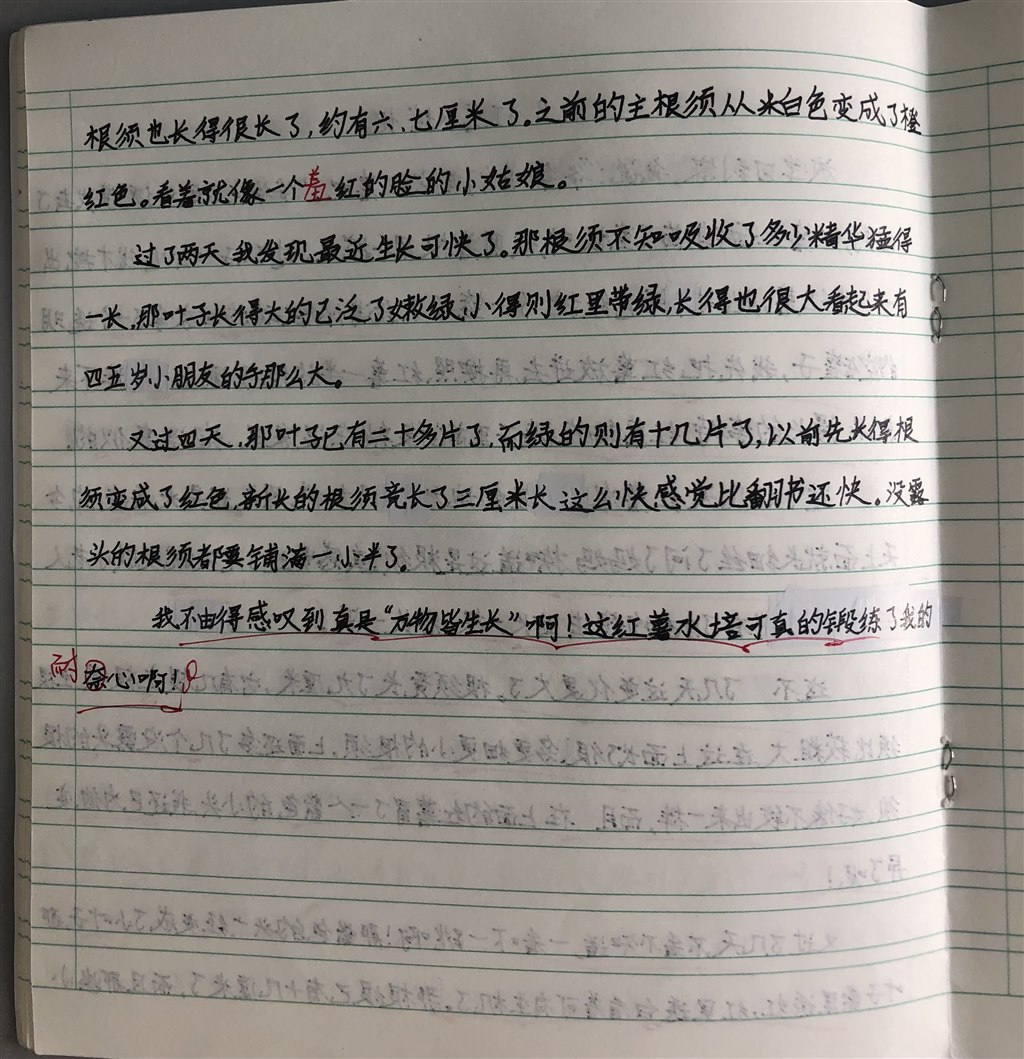 根须也长得很长了,约有六、七厘米了。之前的主根须从米白色变成了橙
红色。看着就像一个羞红的脸的小姑娘。
过了两天,我发现最近生长可快了。那根须不知吸收了多少精华猛得
一长,那叶子长得大的已泛了嫩绿,小得则红里带绿,长得也很大看起来有
四五岁小朋友的手那么大。
又过四天,那叶子已有二十多片了,而绿的则有十几片了,以前先长得根
须变成了红色,新长的根须竟长了三厘米长,这么快感觉比翻书还快。没露
头的根须都要铺满一小半了。
我不由得感叹到真是“万物皆生长”啊!这红薯水培可真的锻练了我的
耐心啊!